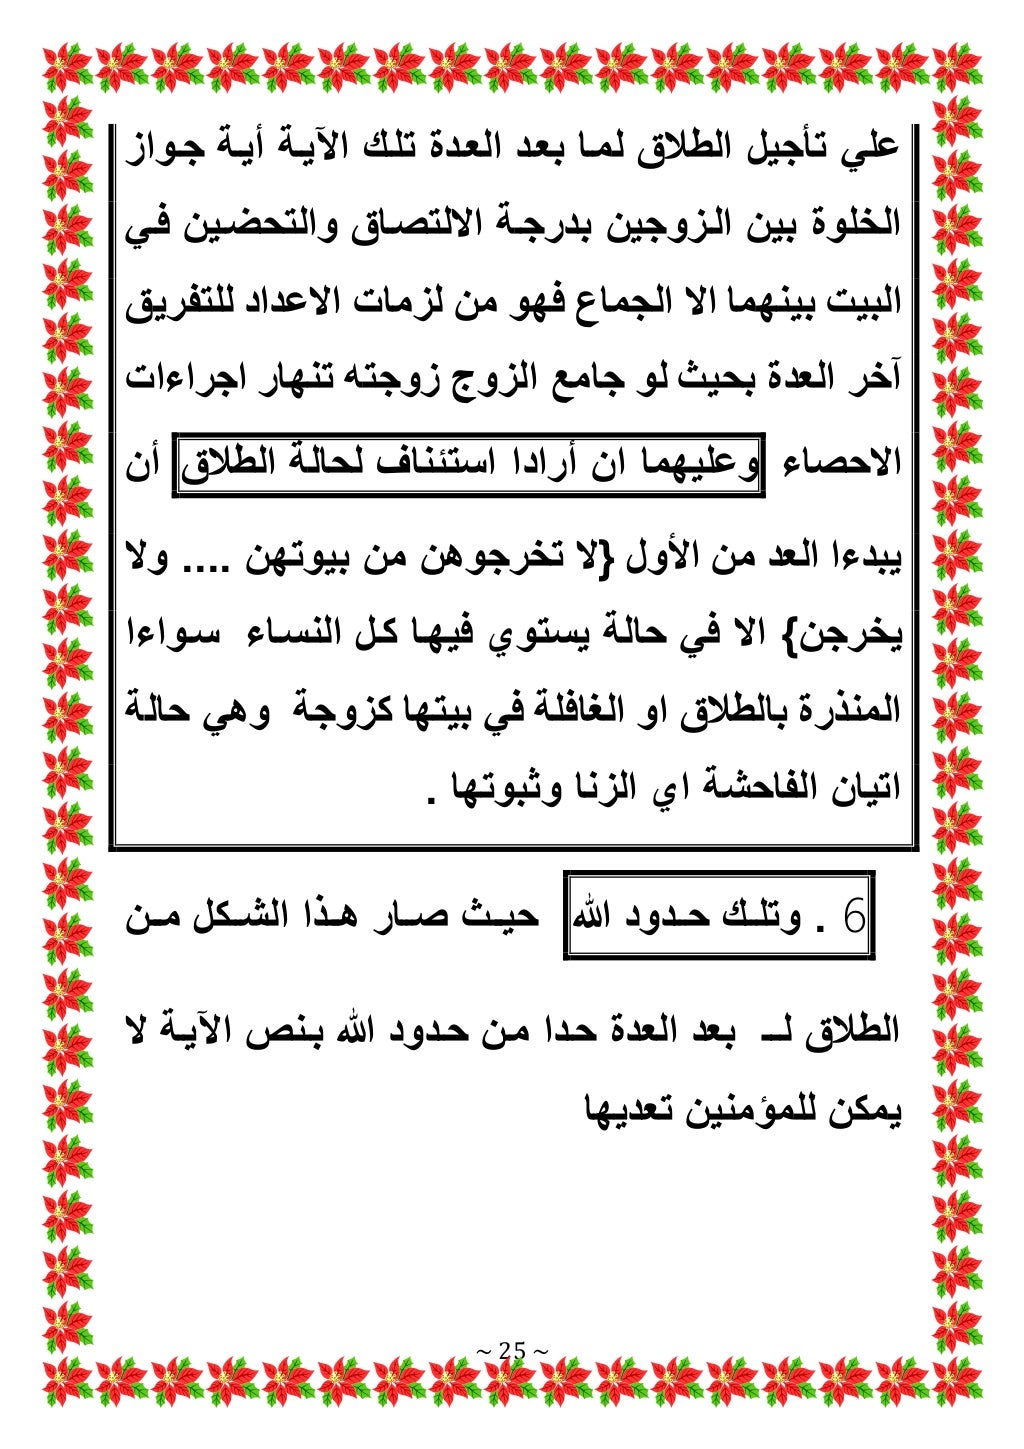 علي تأجيل الطلاق لما بعد العدة تلك الآية أية جواز
الخلوة بين الزوجين بدرجة الالتصاق والتحضين في
البيت بينهما الا الجماع فهو من لزمات الاعداد للتفريق
آخر العدة بحيث لو جامع الزوج زوجته تنهار اجراءات
الاحصاء وعليهما ان أرادا استئناف لحالة الطلاق أن
يبدءا العد من الأول {لا تخرجوهن من بيوتهن .... ولا
يخرجن} الا في حالة يستوي فيها كل النساء سواءا
المنذرة بالطلاق او الغافلة في بيتها كزوجة وهي حالة
اتيان الفاحشة اي الزنا وثبوتها .
6 . وتلك حدود الله حيث صار هذا الشكل من
الطلاق لــ بعد العدة حدا من حدود الله بنص الآية لا
يمكن للمؤمنين تعديها
~ 25 ~